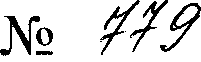 № 779